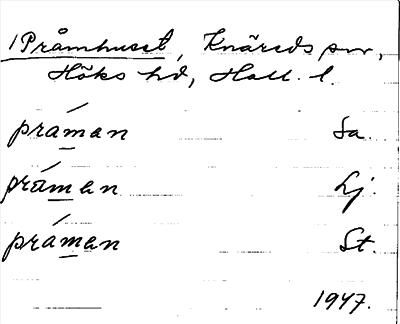 /Pråmhuset, Knäreds snr,
Höks hd, Hall. l.
práman Sa.
práman Lj.
práman St.
1947.